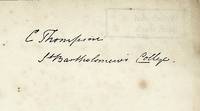 C Thompson
St Bartholomew's College.